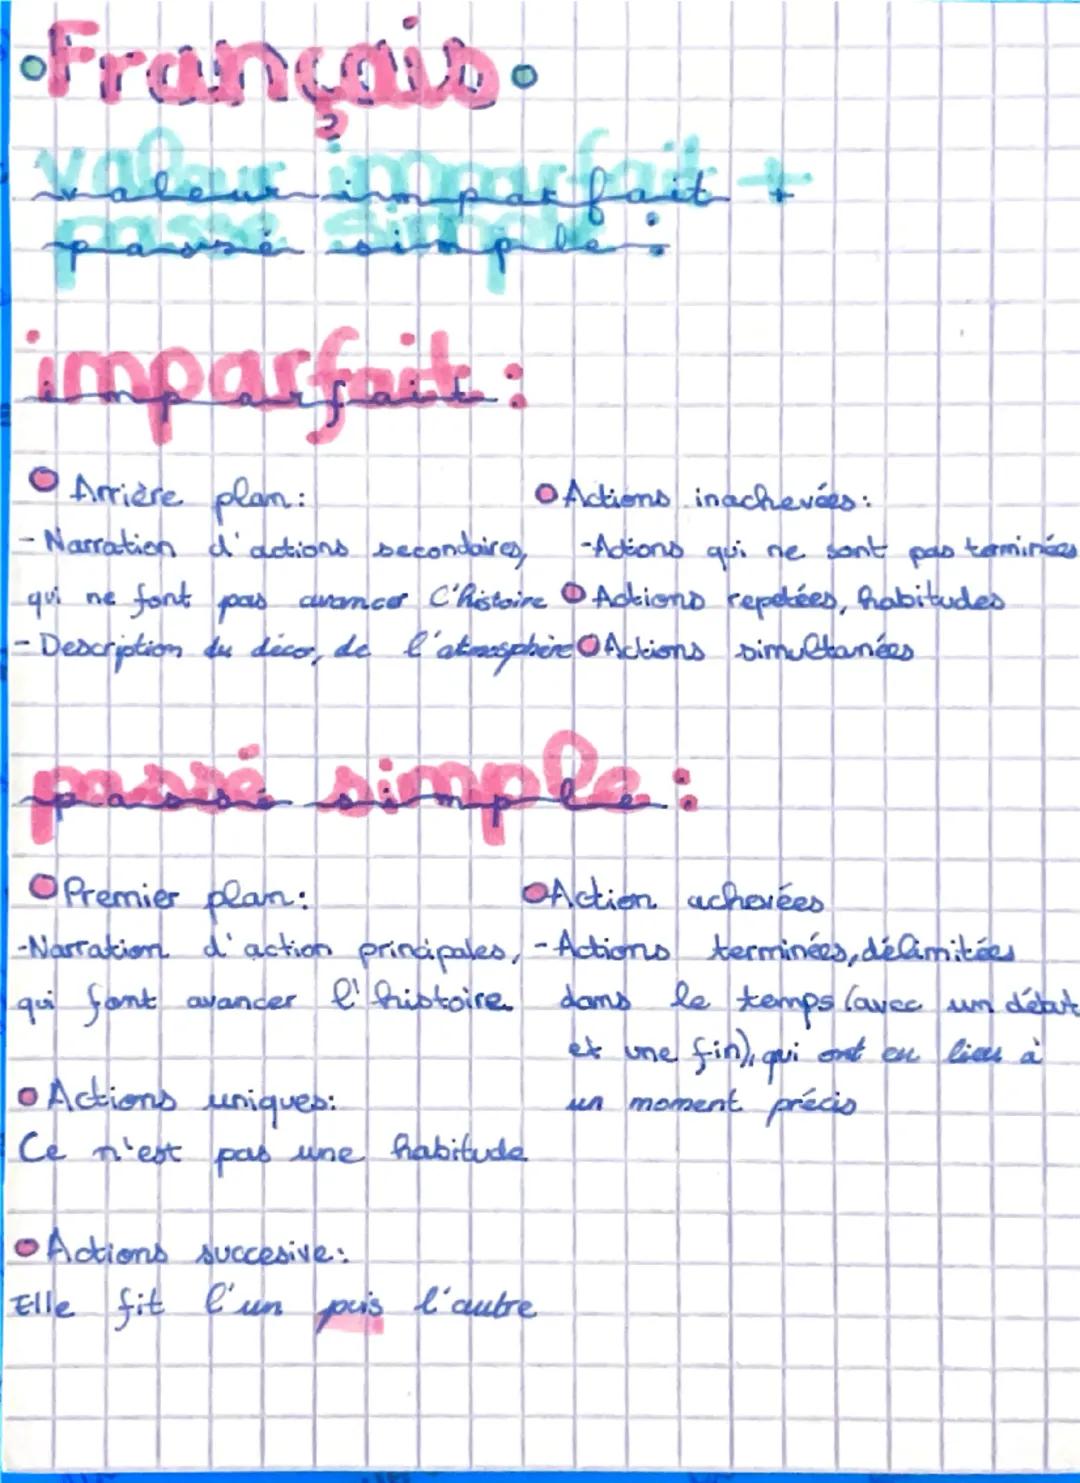 •Français•
valeur imparfait +
passé simple :
imparfait :
Arrière plan:
- Narration d'actions secondaires,
qui ne font pas avancer l'histoire
- Description du décor, de l'atmosphère
Actions inachevées:
-Actions qui ne sont pas terminées
Actions repetées, habitudes
Actions simultanées
passé simple :
Premier plan:
-Narration d'action principales,
qui font avancer l'histoire
Actions uniques:
Ce n'est pas une habitude
Actions succesive:
Elle fit l'un puis l'autre
Action achevées
-Actions terminées, délimitées
dans le temps (avec un début
et une fin), qui ont eu lieu à
un moment précis